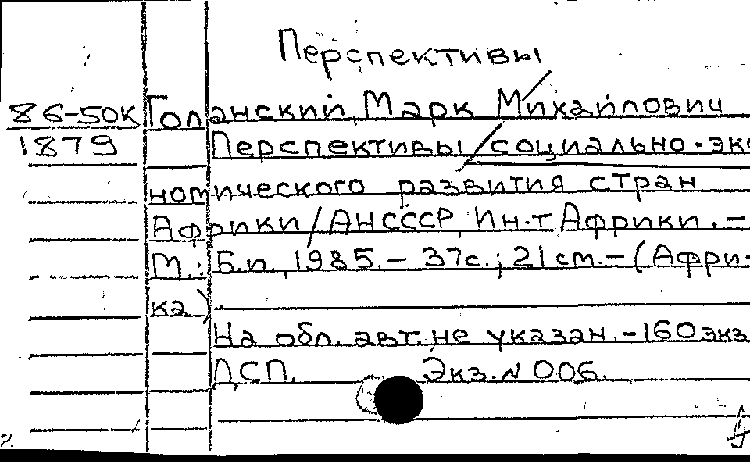 Перспективы
86-50К Голанский, Марк Михайлович
1879 Перспективы социально-эко
номического развития стран
Африки / АН СССР, Ин-т Африки. -
М.: Б.и., 1985. - 37с.; 21см. - (Афри-
ка)
На обл. авт. не указан. - 160экз
ДСП. Экз. N 006.